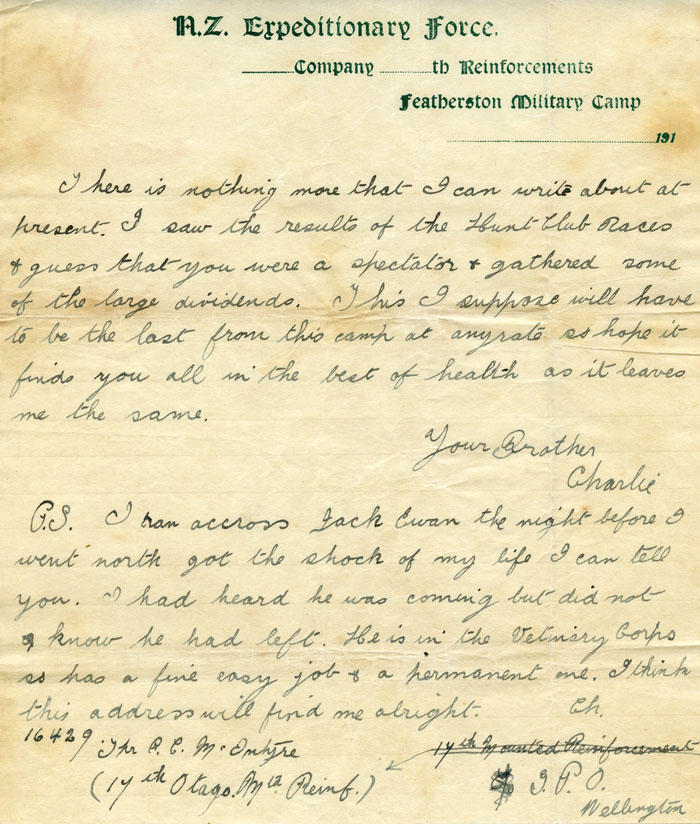 N.Z. Expeditionary Force.
______Company ..........th Reinforcements
Featherston Military Camp
..........191
There is nothing more that I can write about at
present. I saw the results of the Hunt Club Races
& guess that you were a spectator & gathered some
of the large dividends. This I suppose will have
to be the last from this camp at anyrate so hope it
finds you all in the best of health as it leaves
me the same.
Your Brother
Charlie
P.S. I ran accross Jack Ewan the night before I
went north got the shock of my life I can tell
you. I had heard he was coming but did not
know he had left. He is in the Vetinary Corps
so has a fine easy job & a permanent one. I think
this address will find me alright. Ch.
16429 Tpr P. C. McIntyre 17th Mounted Reinforcement
(17th Otago. Mtd Reinf.) G. P. O.
Wellington